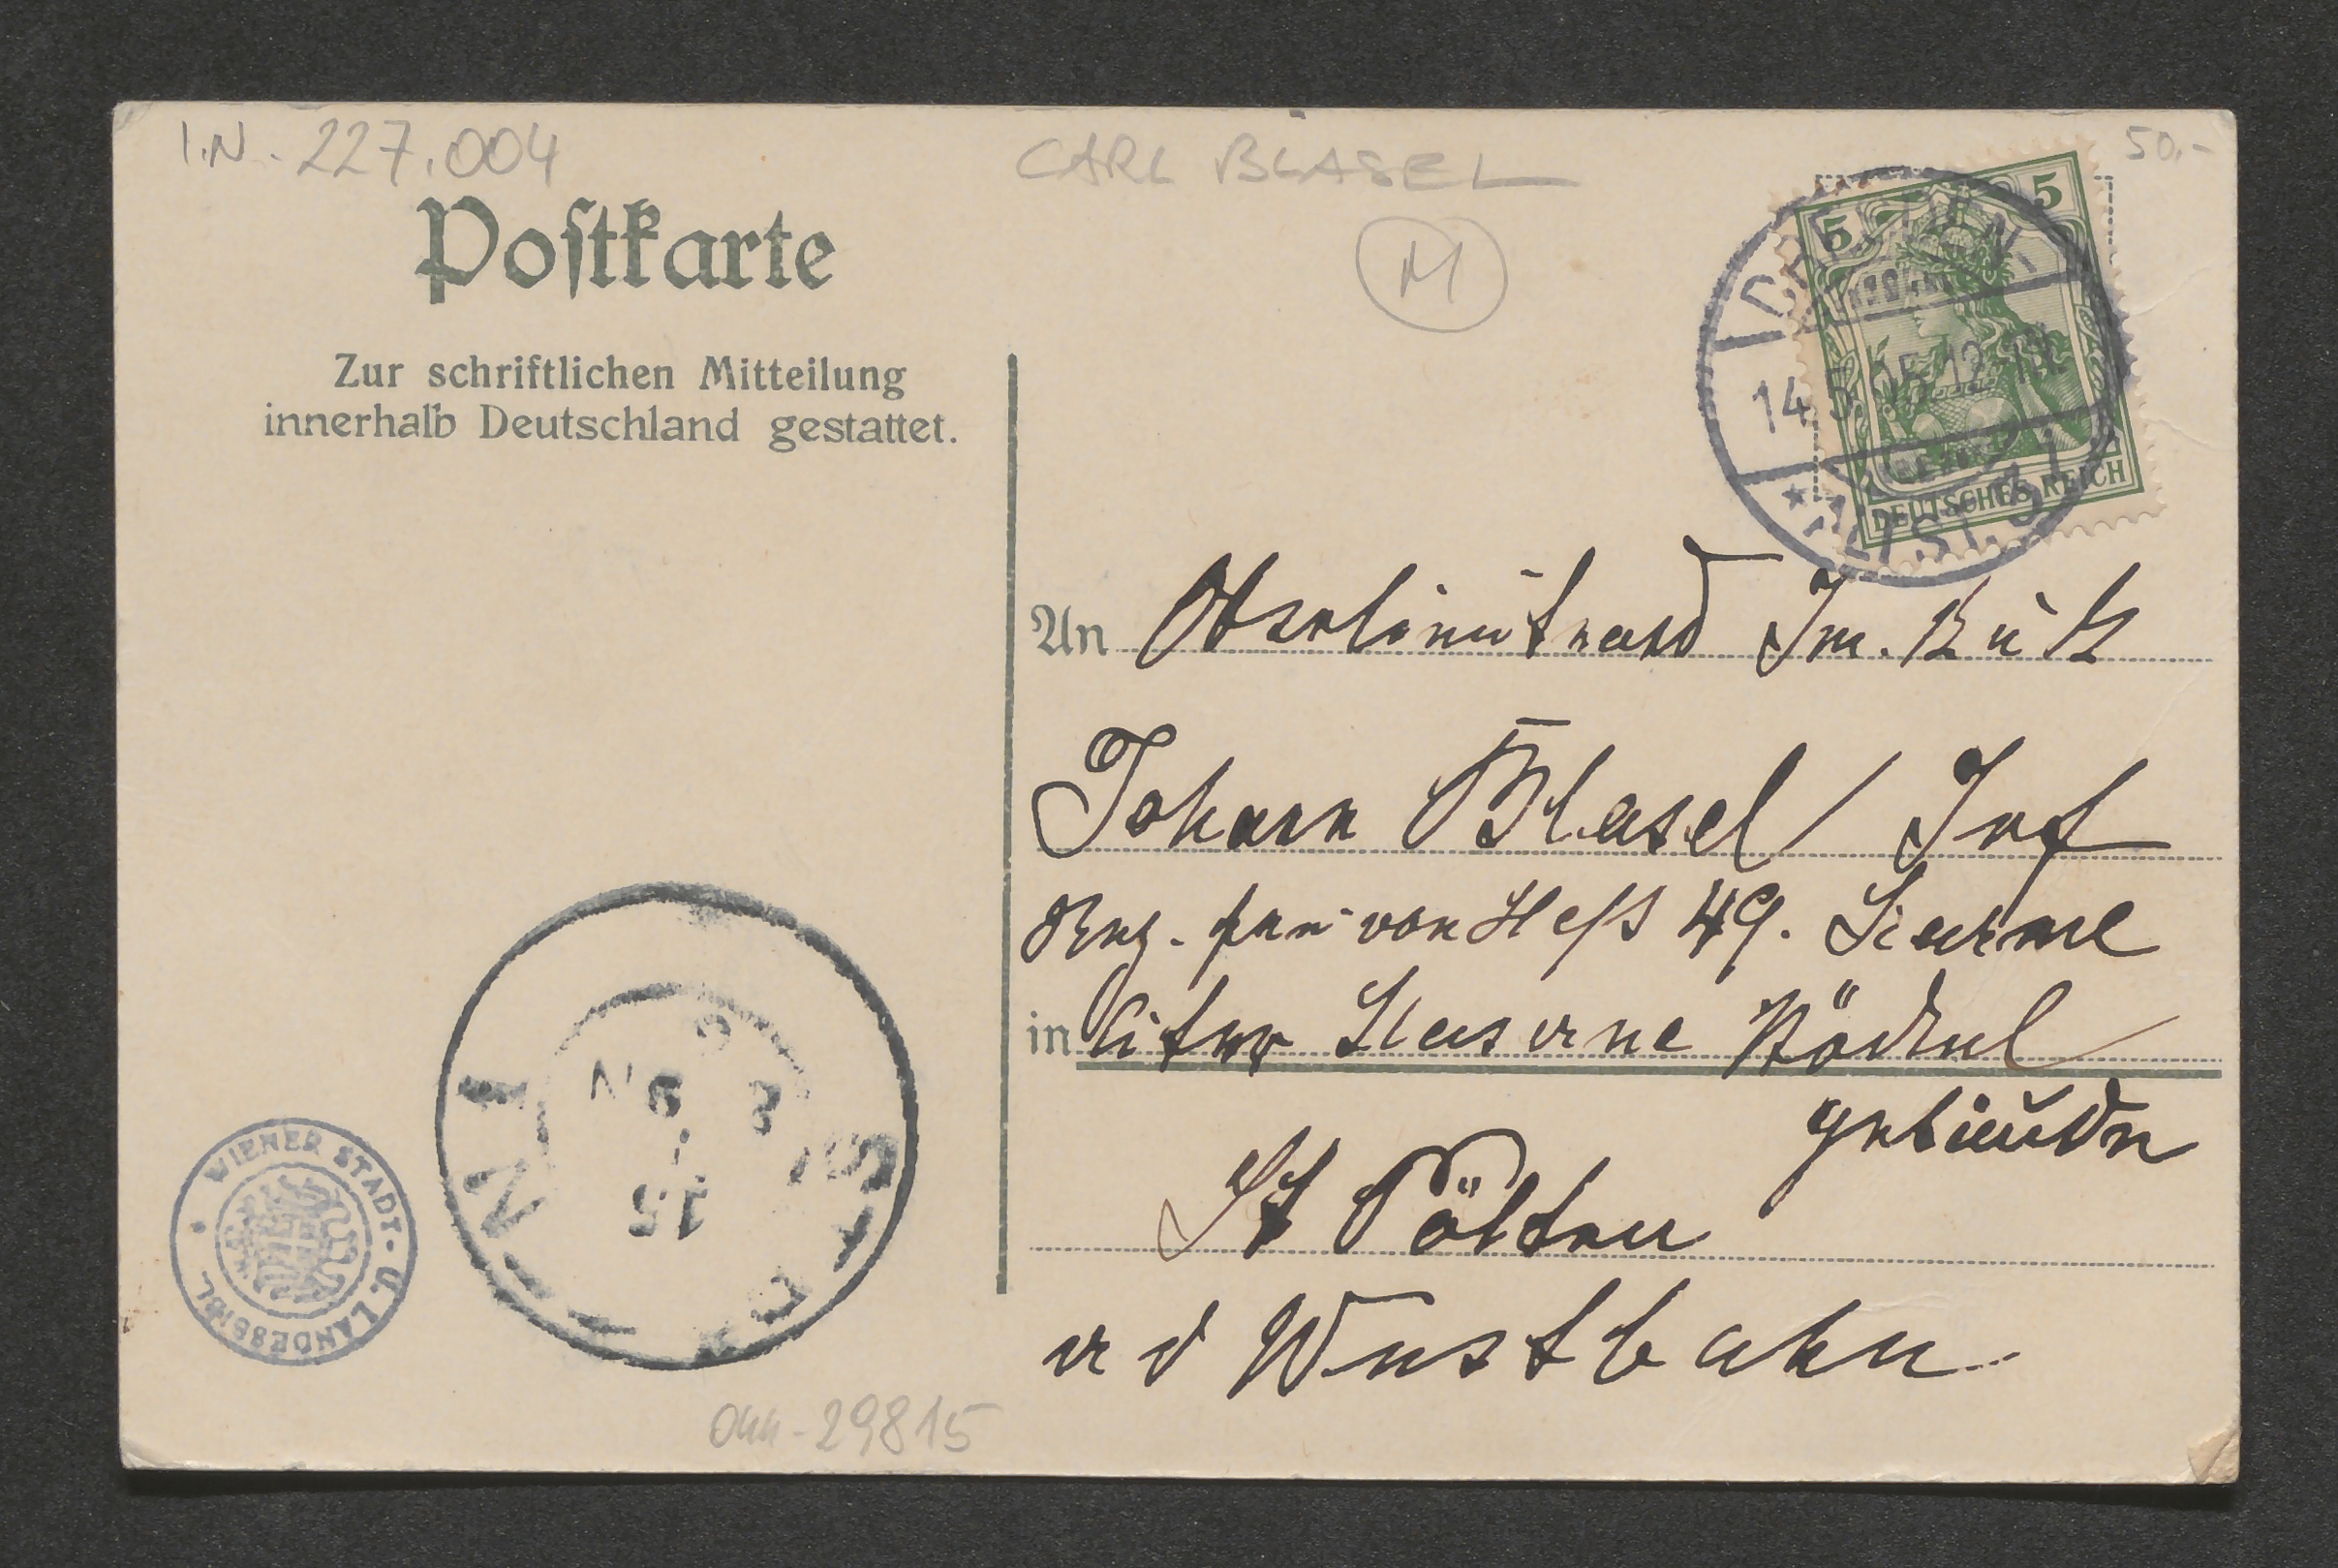 I.N. 227.004
CARL BLASEL
50.-
M
Postkarte
Zur schriftlichen Mitteilung
innerhalb Deutschland gestattet.
5 5
DEUTSCHES REICH
14.5.05.12
ALTST. 1
An Oberleutnant Im. k u k
Johann Blasel / Inf
Reg. frei von Heß 49. Karme
in liter Kaserne Röckel
gebäude
St Pölten
a d Westbahn
15
WIENER STADT- U. LANDESBIBL.
29815